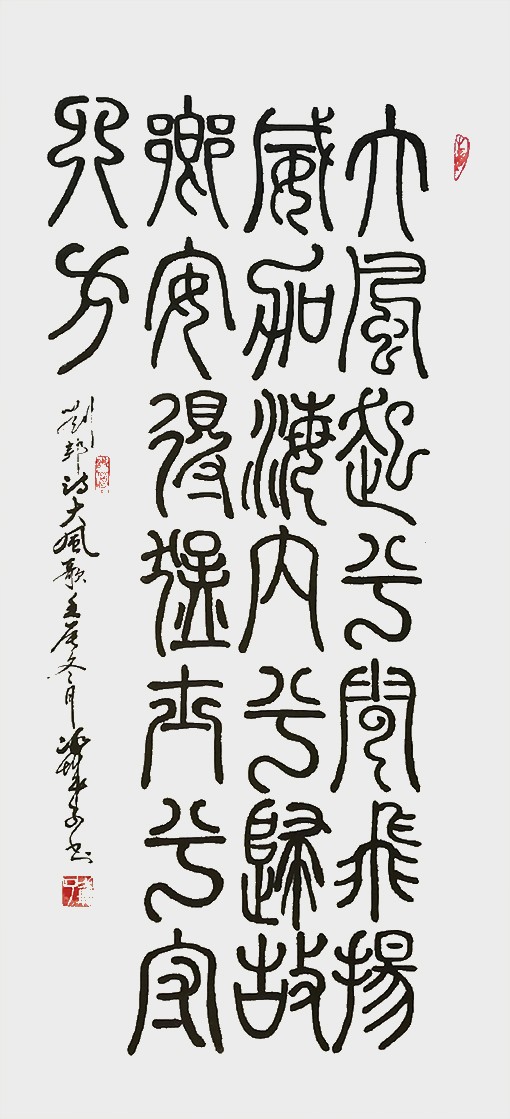 大風起兮雲飛揚
威加海内兮歸故
鄉安得猛士兮守
四方
劉邦詩大風歌壬辰冬月書